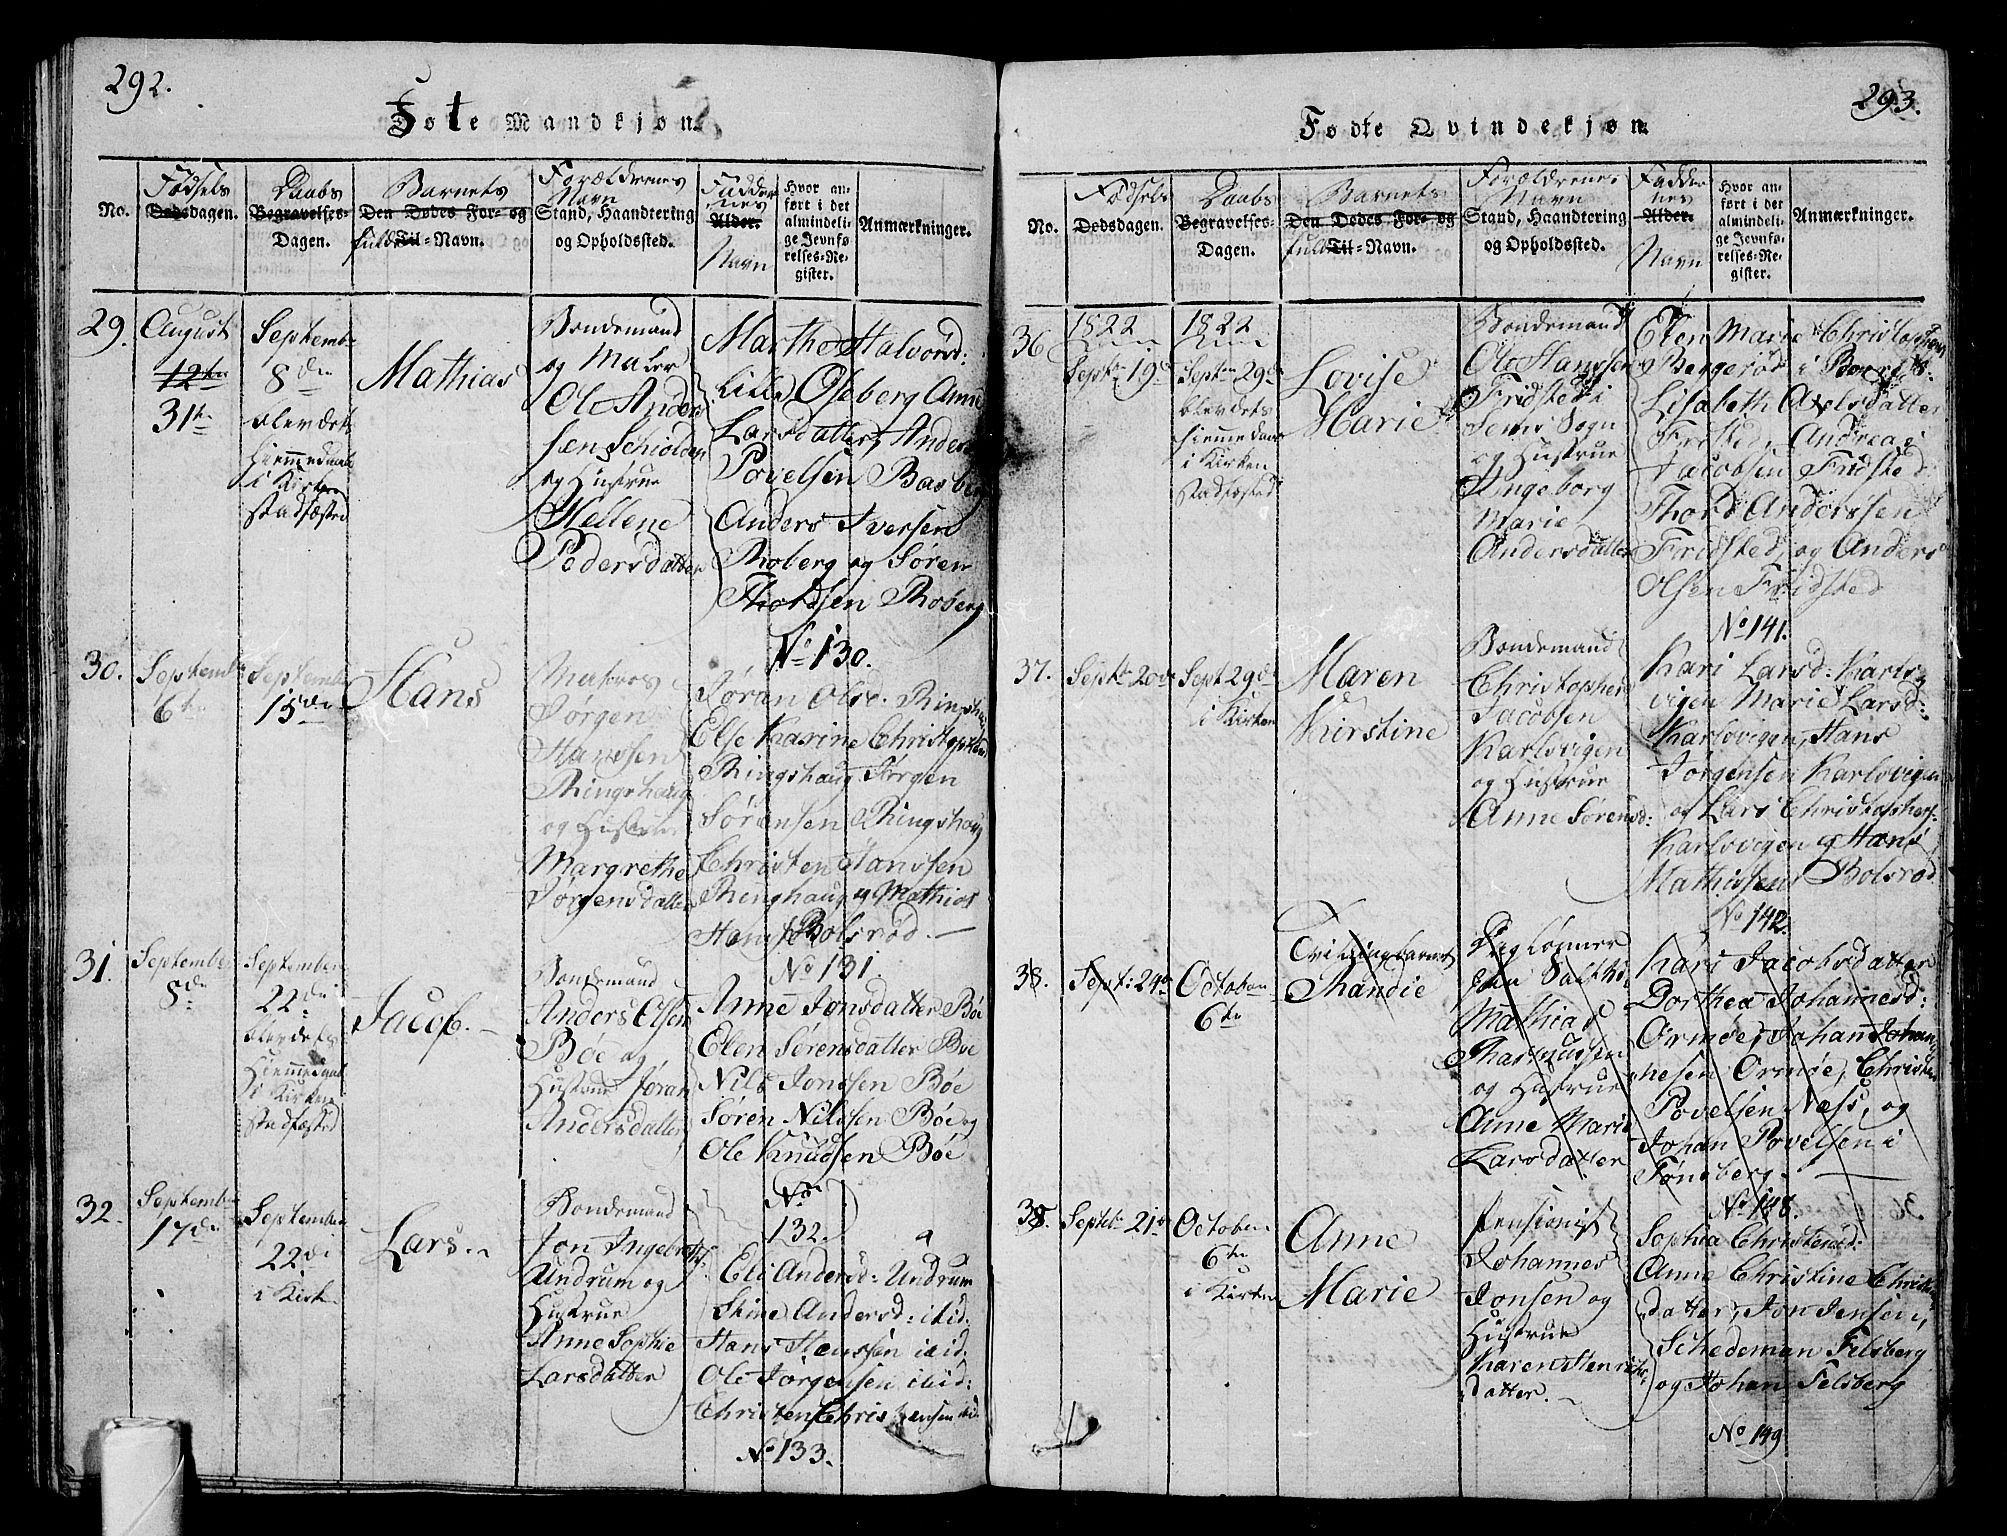 292.
Føte Mandkjøn.
No.
Fødsels
Dødsdagen.
Daabs
Begravelses-
Dagen.
Barnets
Den Dødes For- og
fulde Til-Navn.
Forældrenes
Navn
Stand, Haandtering
og Opholdssted.
Fadder
nes
Alder.
Navn
Hvor an-
ført i det
almindeli-
ge Jevnfø-
relses-Re-
gister.
Anmærkninger.
29.
August
12te
31te
Septemb
8de
blev dets
Hjemmedaab
i Kirken
stadfæsted
Mathias
Bondemand
og Maler
Ole Ander
sen Schiolden
og Hustrue
Hellene
Pedersdatter
Marthe Halvorsd:
Lille Oseberg Anne
Larsdatter, Anders
Povelsen Basberg
Anders Iversen
Roberg og Søren
Thordsen Roberg
No 130.
30.
Septemb:
6te
Septemb
15de
Hans
Matros
Jørgen
Hanssen
Ringshaug
og Hustrue
Margrethe
Jørgensdatter
Jøran Olsd. Ringshaug
Else Karine Christophsd
Ringshaug Jørgen
Sørensen Ringshaug
Christen Hanssen
Ringhaug og Mathias
Hansen Bolsrød. —
No 131.
31.
September
8de
September
22de
blev dets
Hjemmedaab
i Kirken
stadfæsted
Jacob. —
Bondemand
Anders Olsen
Bøe og
Hustrue Jøran
Andersdatter
Anne Jonsdatter Bøe
Elen Sørensdatter Bøe
Nils Jonssen Bøe
Søren Nilssen Bøe og
Ole Knudsen Bøe
No
132.
32.
Septemb
17de
September
22de
i Kirk.
Lars.
Bondemand
Jon Ingebretss:
Undrum og
Hustrue
Anne Sophie
Larsdatter
Eli Andersd: Undrum
Stine Andersd: ibid.
Hans Hanssen ibid.
Ole Jørgensen ibid:
Christen Christensen ibid.
No 133.
293.
Fødte Qvindekjøn
No.
Fødsels
Dødsdagen.
Daabs
Begravelses-
Dagen.
Barnets
Den Dødes For- og
fulde Til-Navn.
Forældrenes
Navn
Stand, Haandtering
og Opholdssted.
Fadder
nes
Alder.
Navn
Hvor an-
ført i det
almindeli-
ge Jevnfø-
relses-Re-
gister.
Anmærkninger.
36
1822
Septbr 19de
1822
Septbr 29de
blev dets
Hjemmedaab
i Kirken
stadfæsted
Lovise
Marie
Bondemand
Ole Hanssen
Fridsted i
Sems Sogn
og Hustrue
Ingeborg
Marie
Andersdatter
Elen Marie Christophers
Bergerød i
Lisabeth Axelsdatter
Fristed, Andreas
Jacobsen Fridsted
Thord Anderssen
Fridsted, og Anders
Olsen Fridsted
No 141.
37.
Septbr 20de
Sept 29de
i Kirken
Maren
Kirstine
Bondemand
Christopher
Jacobsen
Karlsvigen
og Hustrue
Anne Sørensd:
Kari Larsd: Karls
vigen Marie Larsd:
Karlsvigen, Hans
Jørgensen Karlsvigen
og Lars Christophers.
Karlsvigen og Hans
Mathissens Bolsrød
No 142.
38.
Sept: 24de
October
6te
Tvillingbarnet
Thandie
Daglønner
Mathias
Rasmussen
og Hustrue
Anne Marie
Larsdatter
Kari Jacobsdatter
Dorthea Johannesd:
Ormøe, Johan Johan
nesen Ormøe, Christen
Povelsen Næss, og
Johan Povelsen i
Tønsberg. —
No 148.
38.
Septbr 21de
October
6te
i Kirken
Anne
Marie
Pensionist
Johannes
Jonsen og
Hustrue
Karen Henriks
datter. —
Sophia Christensd:
Anne Christine Christens
datter, Jon Jensen i,
Schedeman Felsberg
og Johan Felsberg
No 149